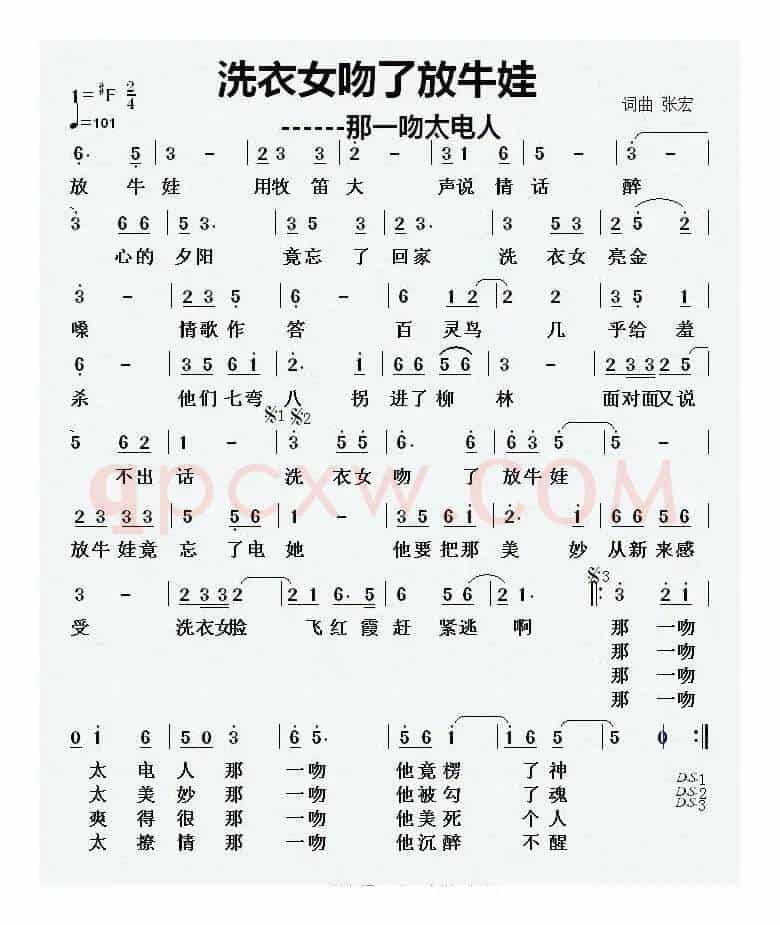 洗衣女吻了放牛娃
1=#F 2/4
♩=101
词曲 张宏
------那一吻太电人
6· 5 | 3 - | 2 3 3 5 | 2 - | 3 1 6 | 5 - | 3 - |
放牛娃 用牧笛大 声说情话 醉
3 6 6 | 5 3· | 3 5 3 | 2 3· | 3 5 3 | 2 5 2 |
心的夕阳 竟忘了回家 洗衣女亮金
3 - | 2 3 5 | 6 - | 6 1 2 | 2 2 | 3 5 1 |
嗓 情歌作答 百灵鸟 几乎给羞
6 - | 3 5 6 1 | 2· 1 | 6 6 5 6 | 3 - | 2 3 3 2 5 |
杀 他们七弯八拐进了柳林 面对面又说
𝄋1 𝄋2
5 6 2 | 1 - | 3 5 5 | 6· 6 | 6 3 5 | 5 - |
不出话 洗衣女吻了放牛娃
qpcxw.COM
2 3 3 3 | 5 5 6 | 1 - | 3 5 6 1 | 2· 1 | 6 6 5 6 |
放牛娃竟忘了电她 他要把那美妙从新来感
𝄋3
3 - | 2 3 3 2 | 2 1 6· 5 | 6 5 6 | 2 1· |: 3 2 1 |
受 洗衣女脸 飞红霞赶紧逃啊 那一吻
那一吻
那一吻
那一吻
0 1 6 | 5 0 3 | 6 5· | 5 6 1 | 1 6 5 | 5 0 :|
太电人那一吻 他竟楞了神
D.S.1
太美妙那一吻 他被勾了魂
D.S.2
爽得很那一吻 他美死个人
D.S.3
太撩情那一吻 他沉醉不醒